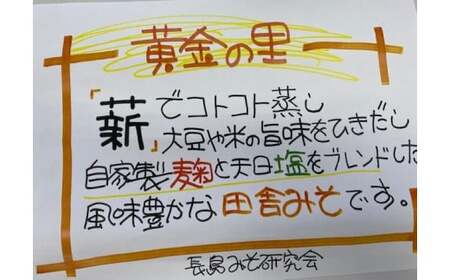 黄金の里
「薪」でコトコト蒸し
大豆や米の旨味をひきだし
自家製麹と天日塩をブレンドした
風味豊かな田舎みそです。
長島みそ研究会